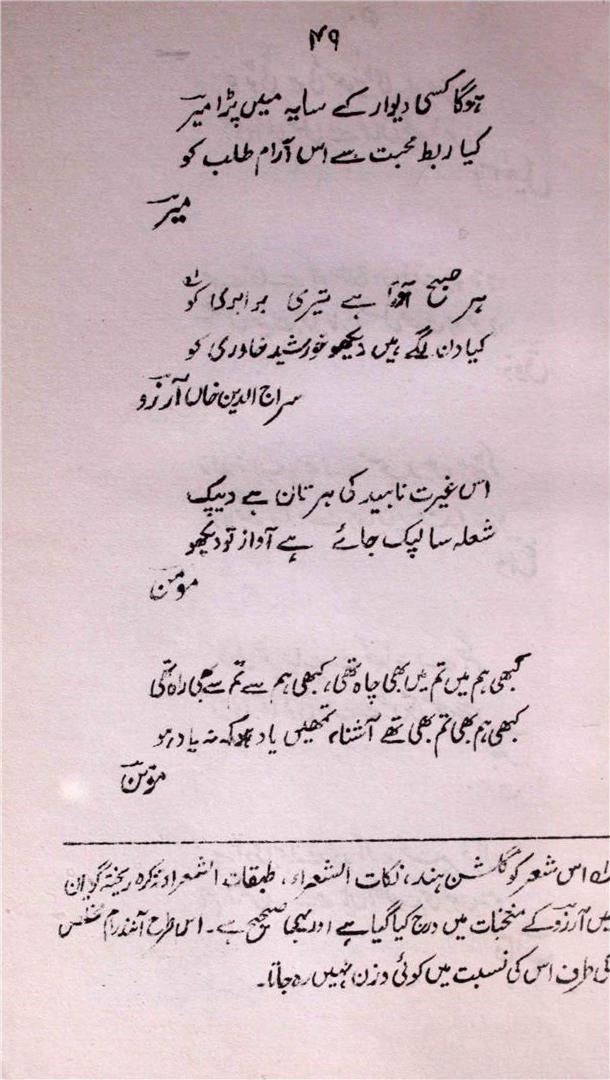 ۴۹
ہوگا کسی دیوار کے سایہ میں پڑا میرؔ
کیا ربط محبت سے اس آرام طلب کو
میرؔ
ہر صبح آوتا ہے تیری برابری کو لہ
کیا دن لگے ہیں دیکھو خورشید خاوری کو
سراج الدین خاں آرزوؔ
اس غیرت ناہید کی ہر تان ہے دیپک
شعلہ سا لپک جائے ہے آواز تو دیکھو
مومنؔ
کبھی ہم میں تم میں بھی چاہ تھی، کبھی ہم سے تم سے بھی راہ تھی
کبھی ہم بھی تم بھی تھے آشنا، تمھیں یاد ہو کہ نہ یاد ہو
مومنؔ
لہ اس شعر کو گلشن ہند، نکات الشعراء، طبقات الشعراء و تذکرہ ریختہ گویان
میں آرزوؔ کے منتخبات میں درج کیا گیا ہے اور یہی صحیح ہے۔ اس طرح آنند رام مخلص
کی طرف اس کی نسبت میں کوئی وزن نہیں رہ جاتا۔